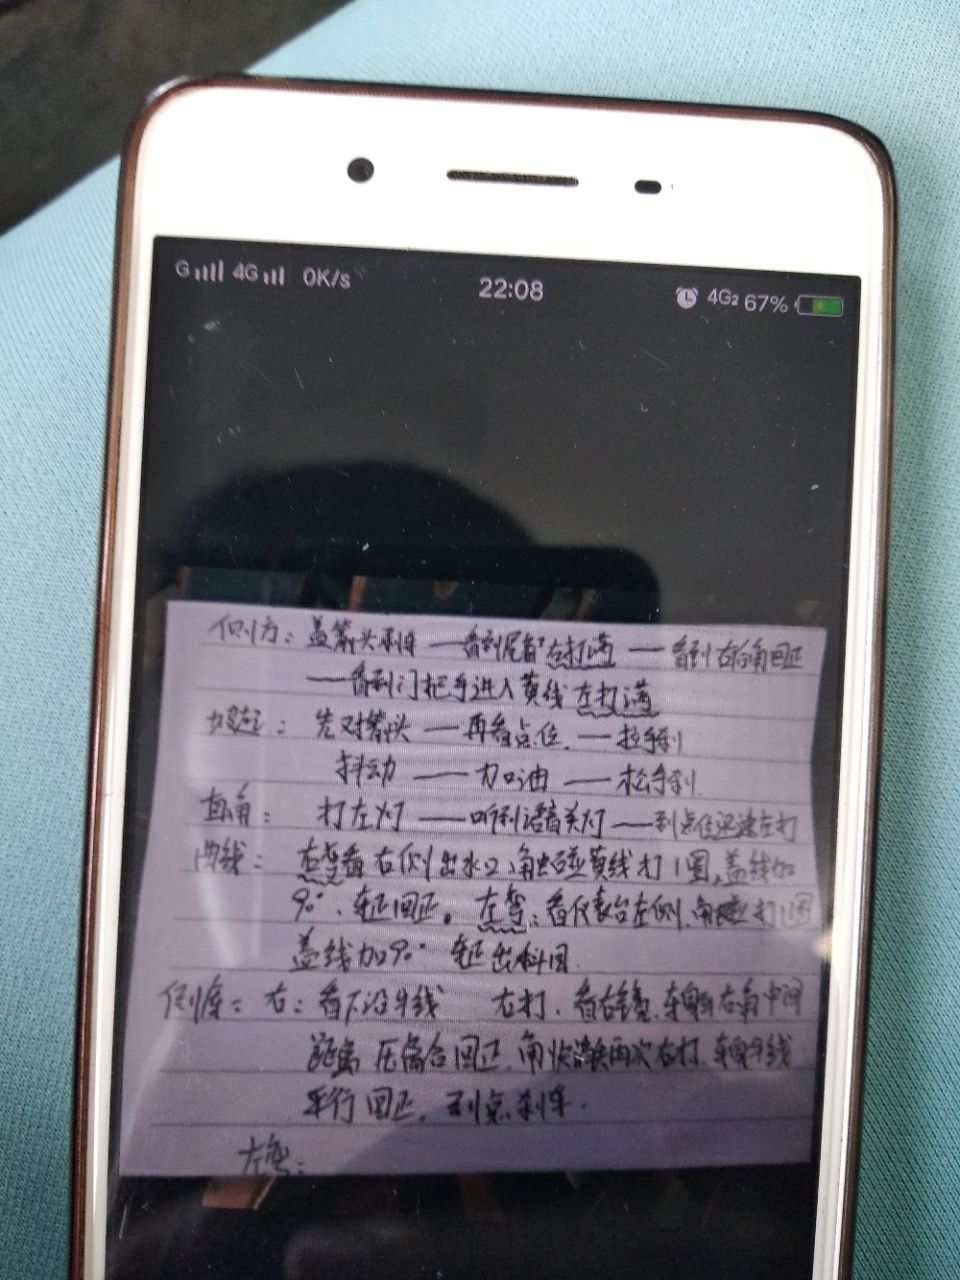 G 4G 0K/s 22:08 4G2 67%
侧方：盖箭头刹车 — 看到尾部右打满 — 看到右后角回正
— 看到门把手进入黄线左打满
坡起：先对箭头 — 再看点位 — 拉手刹
抖动 — 加油 — 松手刹
直角：打左灯 — 听到语音关灯 — 到点位迅速左打
曲线：右侧出水口、角 黄线打1圈,盖线加
90°、车正回正。左弯：看仪表台左侧 打1圈
盖线加90° 车正出科目.
倒库：右：看下沿与线 右打、看右镜 右角中间
距离 压离合回正、角快 两次右打、车身与线
平行回正、到点刹车.
左弯：